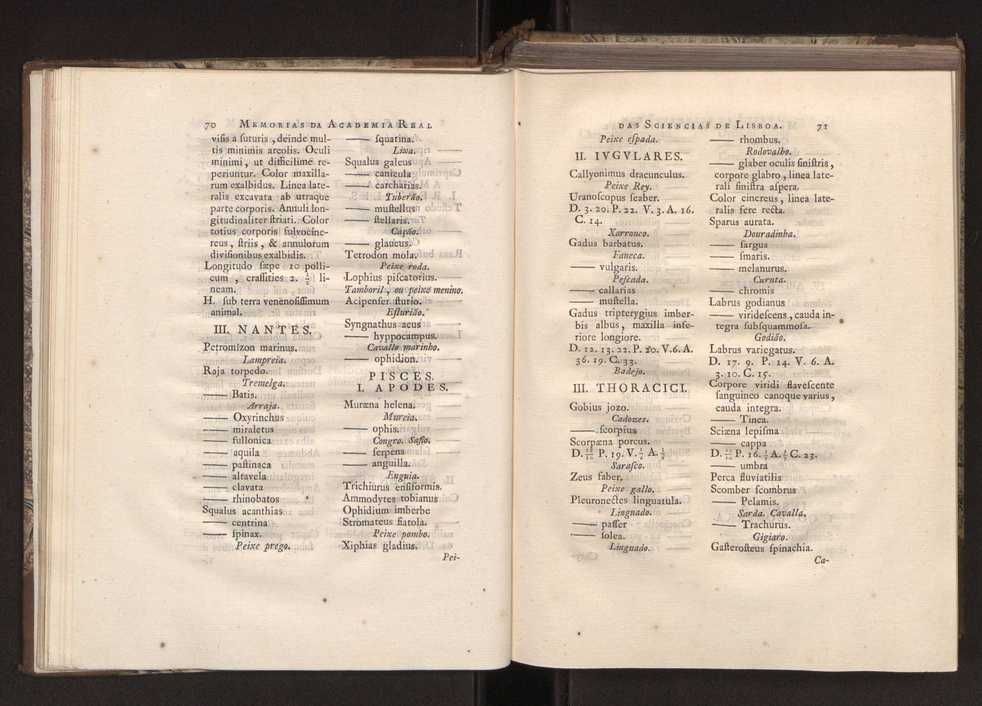 70 MEMORIAS DA ACADEMIA REAL
visis a suturis , deinde mul-
tis minimis areolis. Oculi
minimi , ut difficilimè re-
periuntur. Color maxilla-
rum exalbidus. Linea late-
ralis excavata ab utraque
parte corporis. Annuli lon-
gitudinaliter striati. Color
totius corporis fulvocine-
reus , striis , & annulorum
divisionibus exalbidis.
Longitudo sæpe 10 polli-
cum , crassities 2. ½ li-
neam.
H. sub terra venenosissimum
animal.
III. NANTES.
Petromizon marinus.
Lampreia.
Raja torpedo.
Tremelga.
—— Batis.
Arraja.
—— Oxyrinchus
—— miraletus
—— fullonica
—— aquila
—— pastinaca
—— altavela
—— clavata
—— rhinobatos
Squalus acanthias
—— centrina
—— spinax.
Peixe prego.
—— squatina.
Lixa.
Squalus galeus
—— canicula
—— carcharias.
Tuberão.
—— mustellus
—— stellaris.
Cação.
—— glaucus.
Tetrodon mola.
Peixe roda.
Lophius piscatorius.
Tamboril , ou peixe menino.
Acipenser sturio.
Esturião.
Syngnathus acus
—— hyppocampus.
Cavallo marinho.
—— ophidion.
PISCES.
I. APODES.
Muræna helena.
Mureia.
—— ophis.
Congro. Safio.
—— serpens
—— anguilla.
Euguia.
Trichiurus ensiformis.
Ammodytes tobianus
Ophidium imberbe
Stromateus fiatola.
Peixe pombo.
Xiphias gladius.
Pei-
DAS SCIENCIAS DE LISBOA. 71
Peixe espada.
II. IVGVLARES.
Callyonimus dracunculus.
Peixe Rey.
Uranoscopus scaber.
D. 3. 20. P. 22. V. 3. A. 16.
C. 14.
Xarrouco.
Gadus barbatus.
Faneca.
—— vulgaris.
Pescada.
—— callarias
—— mustella.
Gadus tripterygius imber-
bis albus , maxilla infe-
riore longiore.
D. 12. 13. 22. P. 20. V.6. A.
36. 19. C. 33.
Badejo.
III. THORACICI.
Gobius jozo.
Cadozes.
—— scorpius
Scorpæna porcus.
Sarasco.
Zeus faber.
Peixe gallo.
Pleuronectes linguatula.
Linguado.
—— passer
—— solea.
Linguado.
—— rhombus.
Rodovalho.
—— glaber oculis sinistris ,
corpore glabro , linea late-
rali sinistra aspera.
Color cinereus , linea late-
ralis fere recta.
Sparus aurata.
Douradinha.
—— sargus
—— smaris.
—— melanurus.
Curuta.
—— chromis
Labrus godianus
—— viridescens , cauda in-
tegra subsquammosa.
Godião.
Labrus variegatus.
D. 17. 9. P. 14. V. 6. A.
3. 10. C. 15.
Corpore viridi flavescente
sanguineo canoque varius ,
cauda integra.
—— Tinca.
Sciæna lepisma
—— cappa
—— umbra
Perca fluviatilis
Scomber scombrus
—— Pelamis.
Sarda. Cavalla.
—— Trachurus.
Gigiaro.
Gasterosteus spinachia.
Ca-